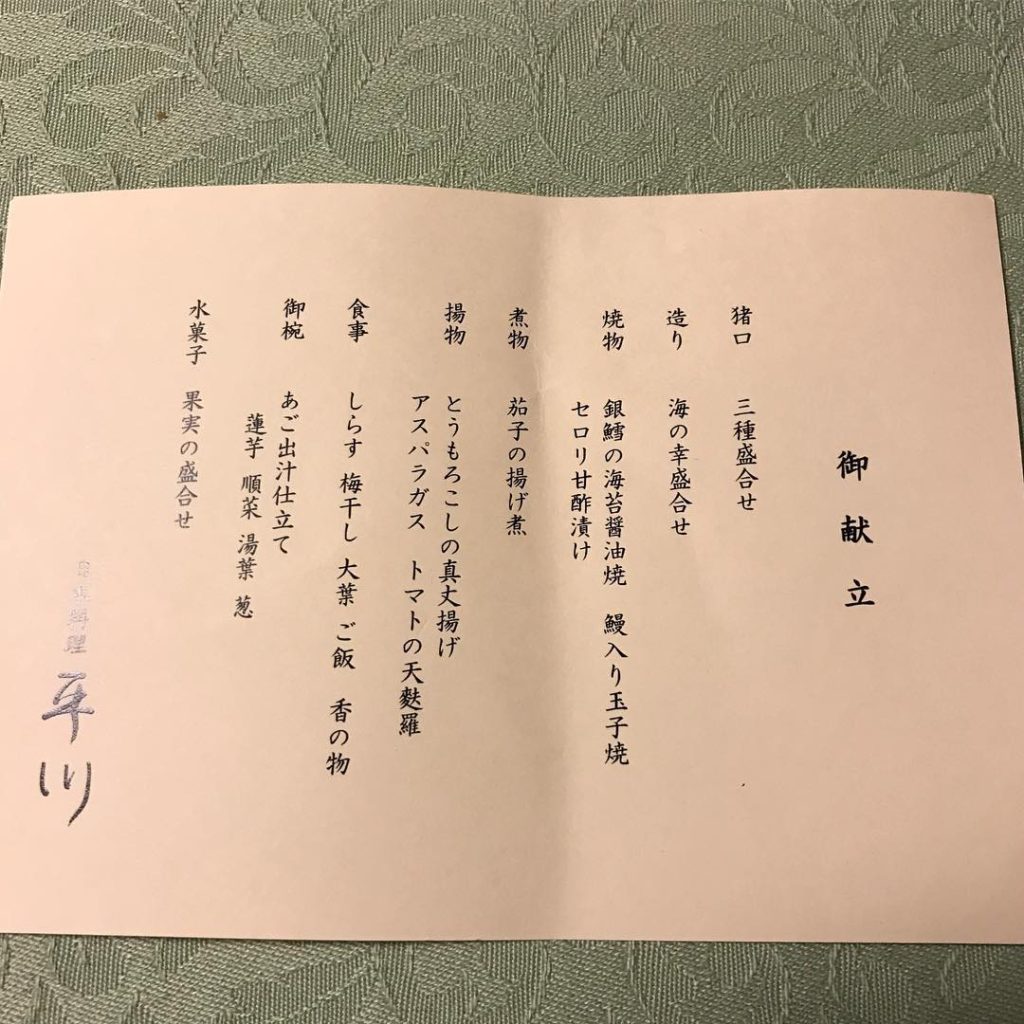 御献立
猪口 三種盛合せ
造り 海の幸盛合せ
焼物 銀鱈の海苔醤油焼 鰻入り玉子焼
セロリ甘酢漬け
煮物 茄子の揚げ煮
揚物 とうもろこしの真丈揚げ
アスパラガス トマトの天麩羅
食事 しらす 梅干し 大葉 ご飯 香の物
御椀 あご出汁仕立て
蓮芋 順菜 湯葉 葱
水菓子 果実の盛合せ
料理 平川